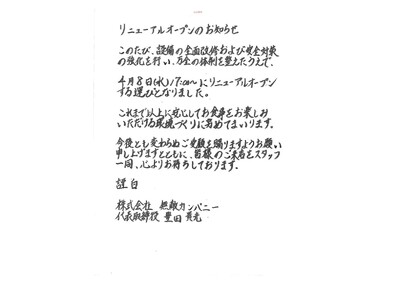 リニューアルオープンのお知らせ
このたび、設備の全面改修および安全対策
の強化を行い、万全の体制を整えたうえで、
4月8日(水)17:00〜にリニューアルオープン
する運びとなりました。
これまで以上に安心してお食事をお楽しみ
いただける環境づくりに努めてまいります。
今後とも変わらぬご愛顧を賜りますようお願い
申し上げますとともに、皆様のご来店をスタッフ
一同、心よりお待ちしております。
謹白
株式会社 無敵カンパニー
代表取締役 豊田